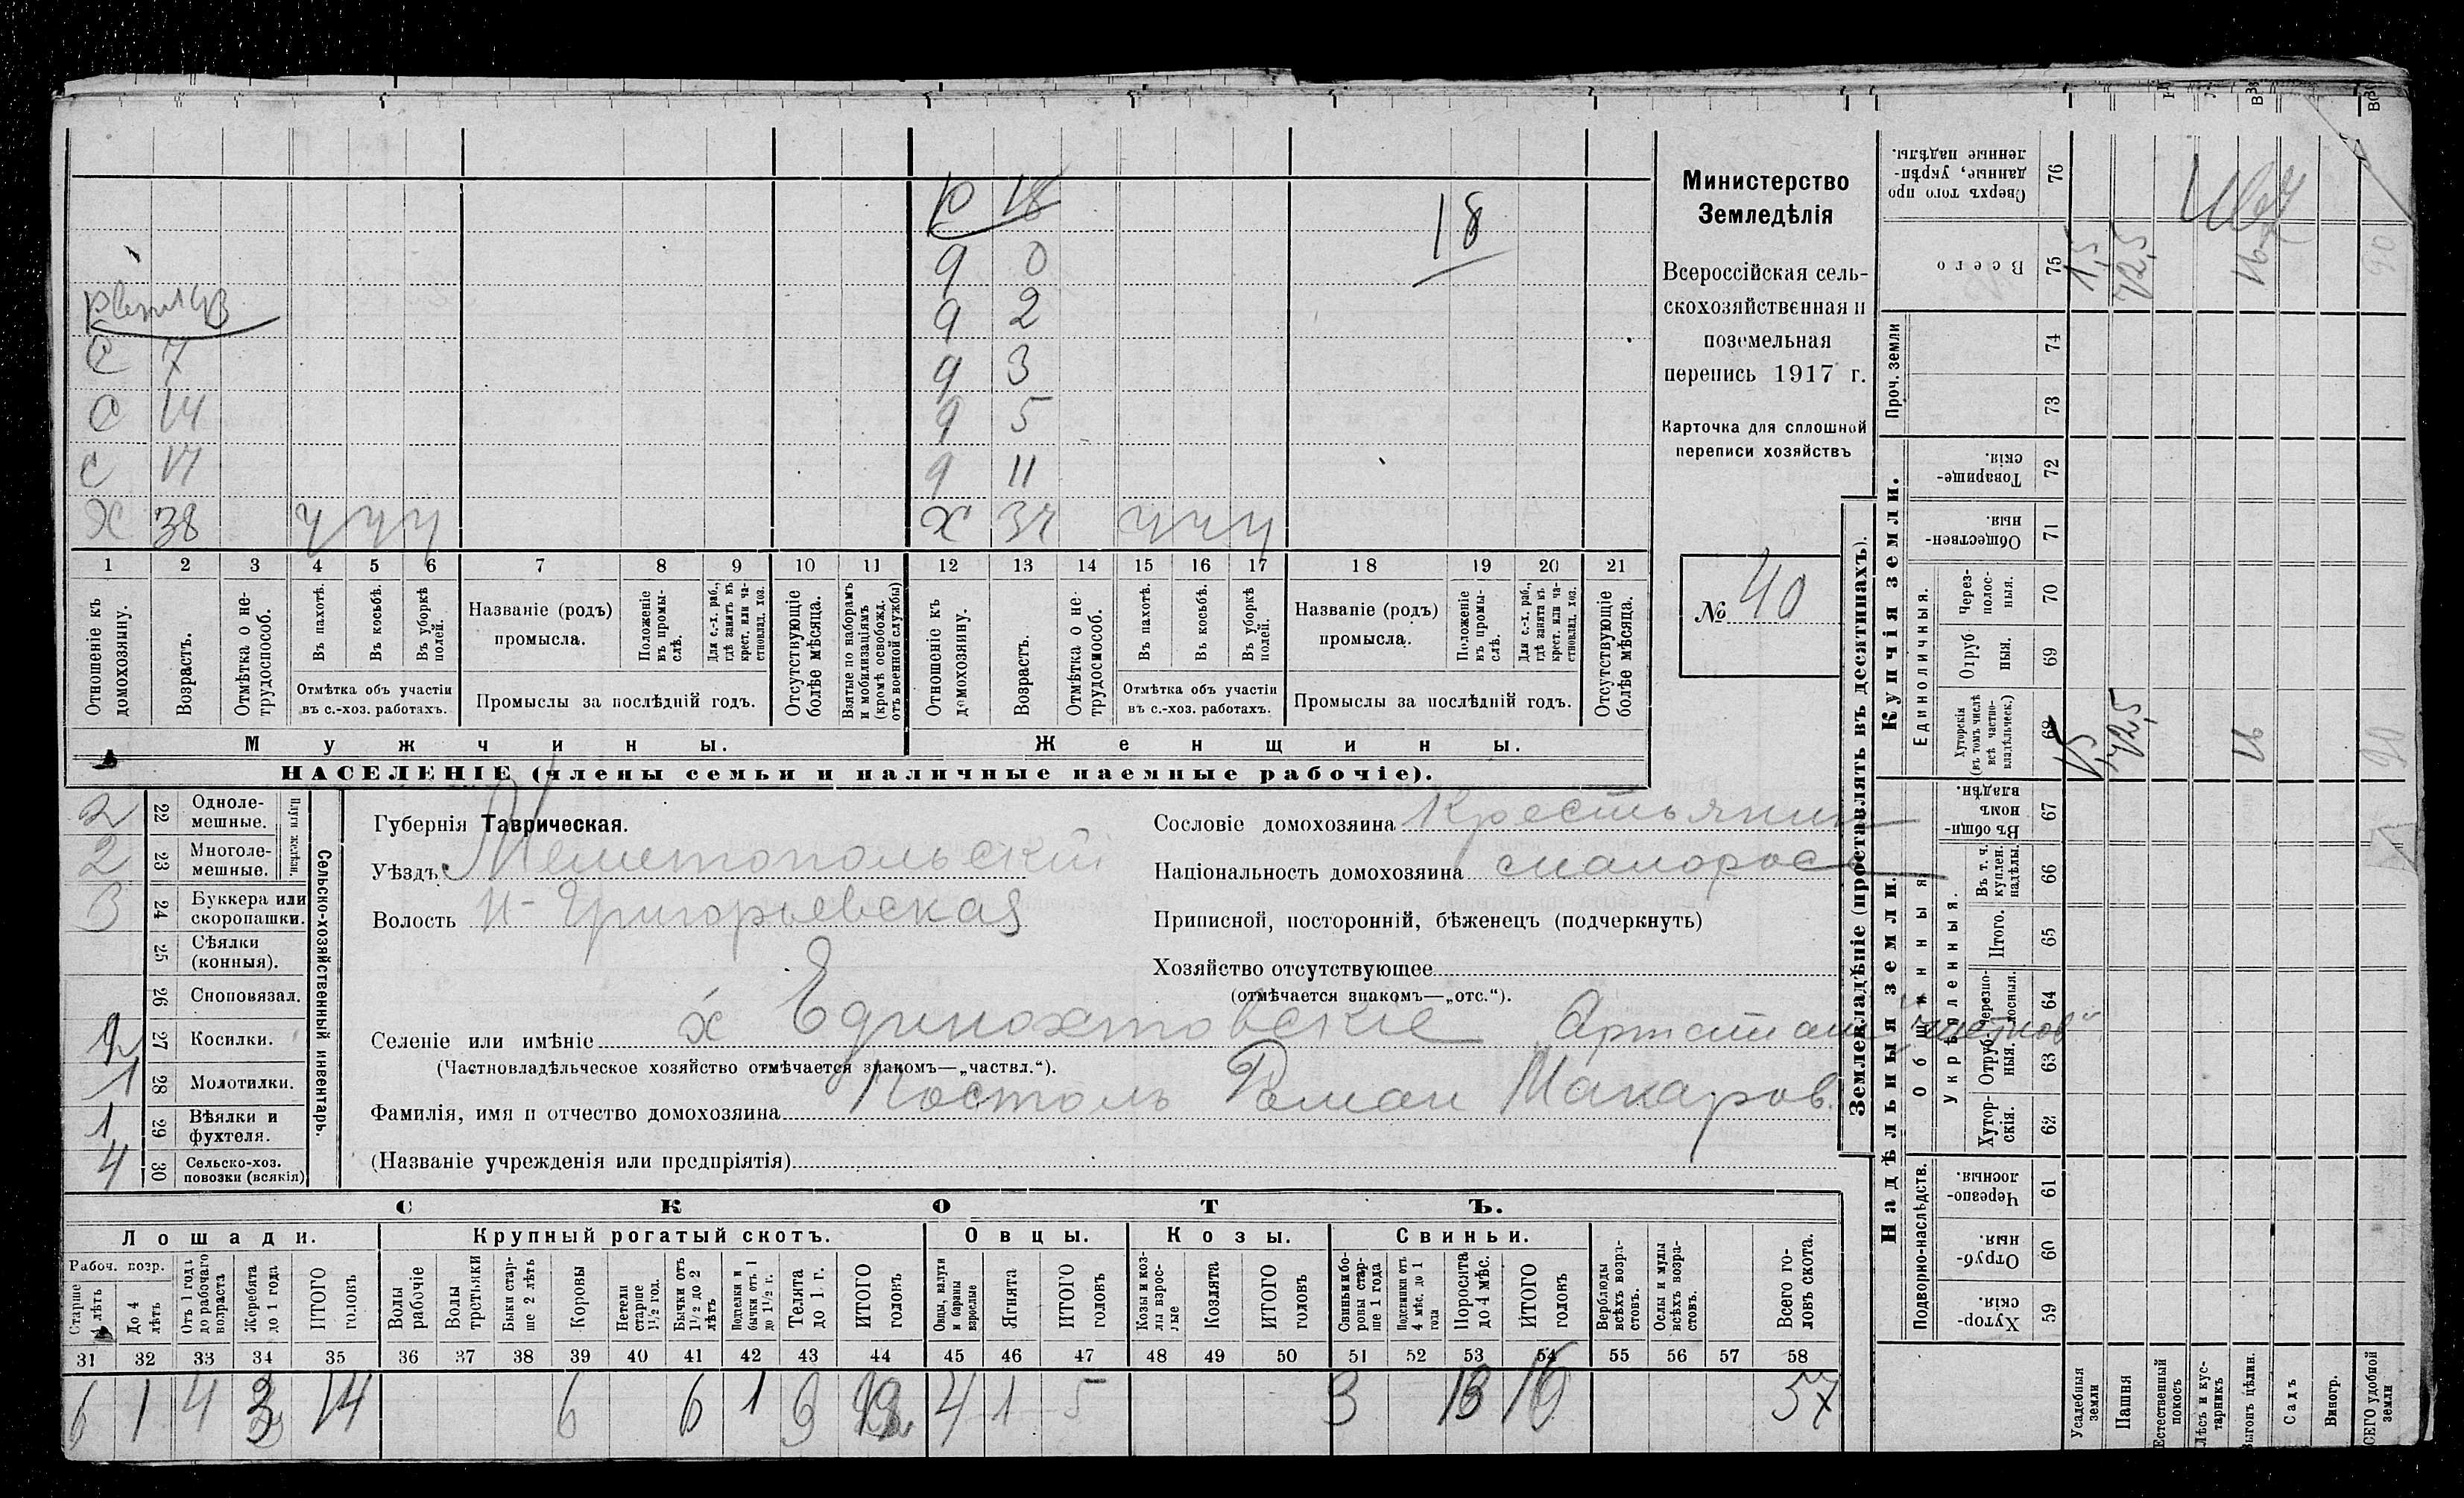 Министерство
Земледѣлія
Всероссійская сель-
скохозяйственная и
поземельная
перепись 1917 г.
Карточка для сплошной
переписи хозяйствъ
№ 40
18
Ю 18
9 0
9 2
9 3
С 7 9 5
С 14 9 11
С 17
Х 38 ч ч ч Х 37 ч ч ч
1 2 3 4 5 6 7 8 9 10 11 12 13 14 15 16 17 18 19 20 21
Отношеніе къ домохозяину.
Возрастъ.
Отмѣтка о не-трудоспособ.
Въ пахотѣ.
Въ косьбѣ.
Въ уборкѣ полей.
Отмѣтка объ участіи въ с.-хоз. работахъ.
Названіе (родъ) промысла.
Положеніе въ промы-слѣ.
Для с.-х. раб., гдѣ занятъ въ крест. или ча-стновлад. хоз.
Промыслы за послѣдній годъ.
Отсутствующіе болѣе мѣсяца.
Взятые по наборамъ и мобилизаціямъ (кромѣ освобожд. отъ военной службы)
Отношеніе къ домохозяину.
Возрастъ.
Отмѣтка о не трудоспособ.
Въ пахотѣ.
Въ косьбѣ.
Въ уборкѣ полей.
Отмѣтка объ участіи въ с.-хоз. работахъ.
Названіе (родъ) промысла.
Положеніе въ промы-слѣ.
Для с.-х. раб., гдѣ занята въ крест. или ча-стновлад. хоз.
Промыслы за послѣдній годъ.
Отсутствующіе болѣе мѣсяца.
Мужчины.
Женщины.
НАСЕЛЕНІЕ (члены семьи и наличные наемные рабочіе).
Сельско-хозяйственный инвентарь.
Плуги желѣзн.
2 22 Одноле-мешные.
2 23 Многоле-мешные.
3 24 Буккера или скоропашки.
25 Сѣялки (конныя).
26 Сноповязал.
2 27 Косилки.
1 28 Молотилки.
1 29 Вѣялки и фухтеля.
4 30 Сельско-хоз. повозки (всякія)
Губернія Таврическая.
Уѣздъ Мелитопольскій
Волость Н-Григорьевская
Сословіе домохозяина Крестьянин
Національность домохозяина малорос
Приписной, посторонній, бѣженецъ (подчеркнуть)
Хозяйство отсутствующее
(отмѣчается знакомъ—„отс.“).
Селеніе или имѣніе х
(Частновладѣльческое хозяйство отмѣчается знакомъ—„частвл.“).
Фамилія, имя и отчество домохозяина Постоль Роман Макаров.
(Названіе учрежденія или предпріятія)
СКОТЪ.
Лошади. Крупный рогатый скотъ. Овцы. Козы. Свиньи.
Рабоч. возр.
Старше 4 лѣтъ
До 4 лѣтъ
Отъ 1 года до рабочаго возраста
Жеребята до 1 года
ИТОГО головъ
Волы рабочіе
Волы третьяки
Быки стар-ше 2 лѣтъ
Коровы
Нетели старше 1½ год.
Бычки отъ 1½ до 2 лѣтъ
Подтелки и бычки отъ 1 до 1½ г.
Телята до 1 г.
ИТОГО головъ
Овцы, валухи и бараны взрослые
Ягнята
ИТОГО головъ
Козы и коз-лы взрос-лые
Козлята
ИТОГО головъ
Свиньи бо-ровы стар-ше 1 года
Подсвинки отъ 4 мѣс. до 1 года
Поросята до 4 мѣс.
ИТОГО головъ
Верблюды всѣхъ возра-стовъ.
Ослы и мулы всѣхъ возра-стовъ.
Всего го-ловъ скота.
31 32 33 34 35 36 37 38 39 40 41 42 43 44 45 46 47 48 49 50 51 52 53 54 55 56 57 58
6 1 4 3 14 6 6 1 9 4 1 5 3 13 16 57
Землевладѣніе (проставлять въ десятинахъ).
Надѣльныя земли.
Купчія земли.
Проч. земли
Подворно-наслѣдств.
Общинныя
Укрѣпленныя.
Единоличныя.
Хутор-скія. 59
Отруб-ныя. 60
Черезпо-лосныя. 61
Хутор-скія. 62
Отруб-ныя. 63
Черезпо-лосныя. 64
Итого. 65
Въ т. ч. куплен. надѣлы. 66
Въ общи-номъ владѣн. 67
Хуторскія (въ томъ числѣ всѣ частно-владѣльческ.) 68
Отруб ныя. 69
Через-полос-ныя. 70
Обществен-ныя. 71
Товарище-скія. 72
73
74
Всего 75
Сверхъ того про данные, укрѣп-ленные надѣлы. 76
Усадебныя земли
Пашня
Естественный покосъ
Лѣсъ и кус-тарникъ
Выгонъ цѣлин.
Садъ
Виногр.
ВСЕГО удобной земли
1,5 72,5 16 90
1,5 72,5 16 90